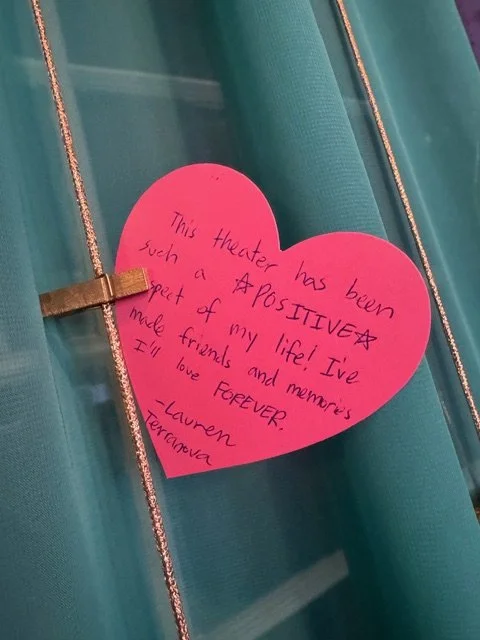 This theater has been
such a ☆POSITIVE☆
spect of my life! I've
made friends and memories
I'll love FOREVER.
-Lauren
Terranova